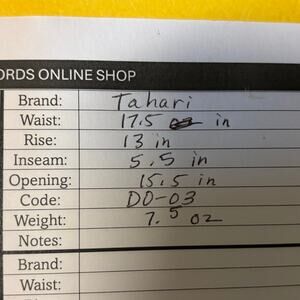 ORDS ONLINE SHOP
Brand: Tahari
Waist: 17.5 in
Rise: 13 in
Inseam: 5.5 in
Opening: 15.5 in
Code: DO-03
Weight: 7.5 oz
Notes:
Brand:
Waist: